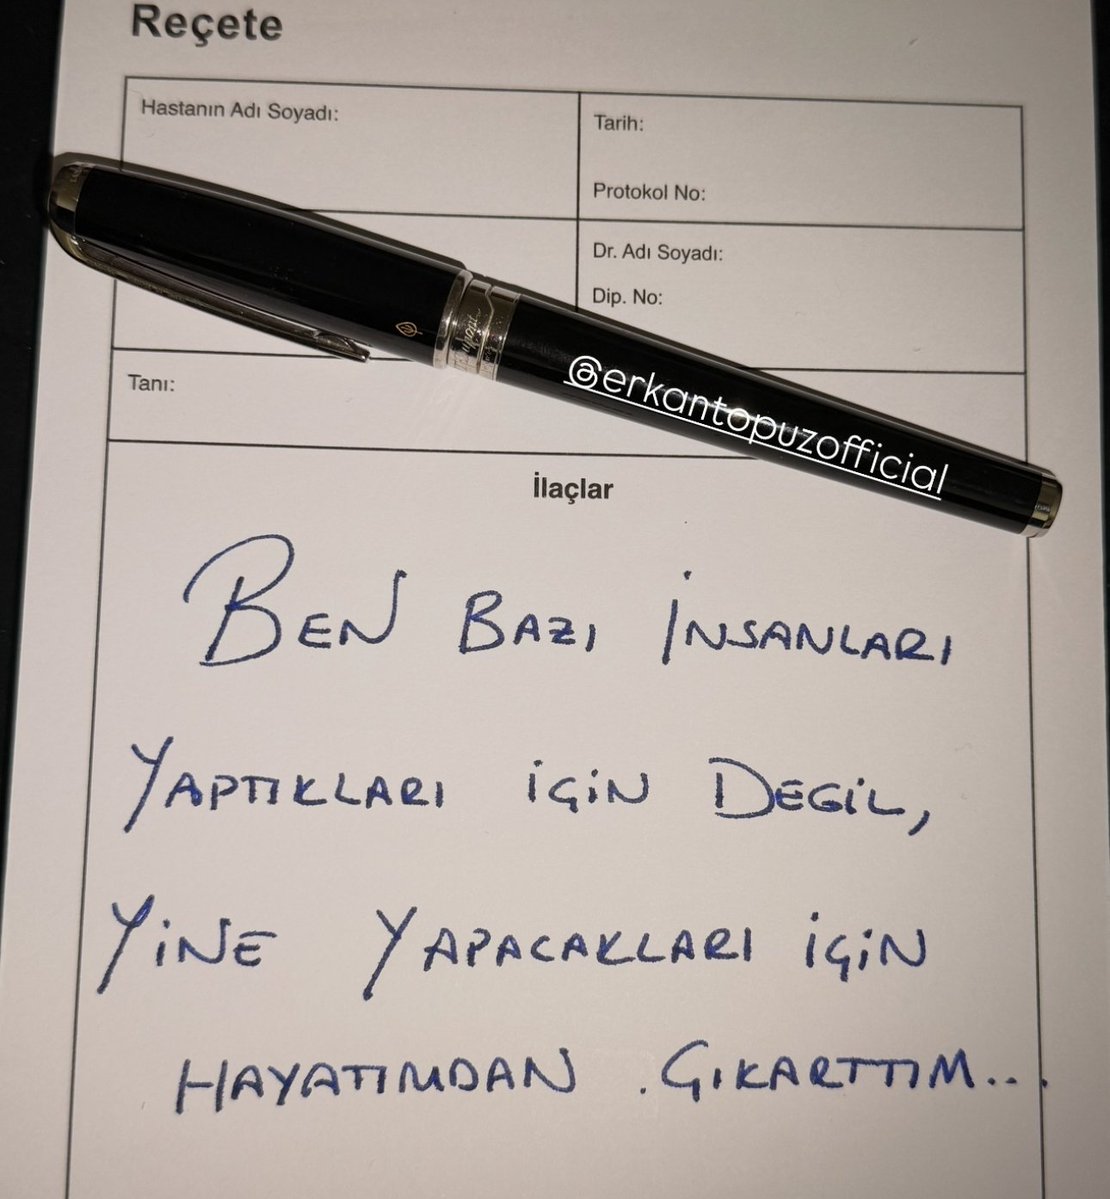 Reçete
Hastanın Adı Soyadı:
Tarih:
Protokol No:
Dr. Adı Soyadı:
Dip. No:
Tanı:
@erkantopuzofficial
İlaçlar
BEN BAZI İNSANLARI
YAPTIKLARI İÇİN DEGİL,
YİNE YAPACAKLARI İÇİN
HAYATIMDAN . ÇIKARTTIM...